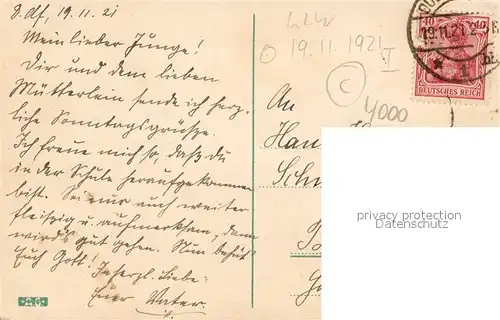 D.Df, 19.11.21
Mein lieber Junge!
Dir und dem lieben
Mütterlein sende ich herz-
liche Sonntagsgrüsze.
Ich freue mich so, dasz du
in der Schule heraufgekommen
bist. Sei nur auch weiter
fleiszig u. aufmerksam, dann
wird's gut gehen. Nun behüt'
Euch Gott! In herzl. Liebe
Euer Vater.
19.11.1921
I
C
4000
40 40
19.11.21.2
DEUTSCHES REICH
An
privacy protection
Datenschutz